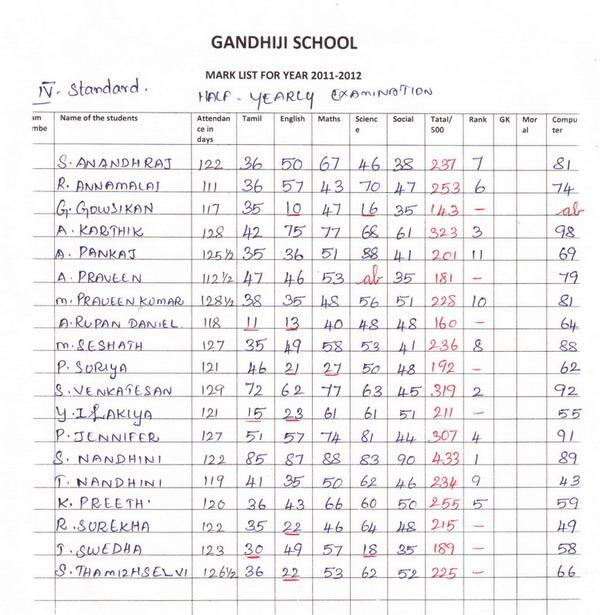 GANDHIJI SCHOOL
MARK LIST FOR YEAR 2011-2012
IV - Standard. HALF - YEARLY EXAMINATION
am mbe Name of the students Attendan ce in days Tamil English Maths Scienc e Social Total/ 500 Rank GK Mor al Compu ter
S. ANANDHRAJ 122 36 50 67 46 38 237 7 81
R. ANNAMALAI 111 36 57 43 70 47 253 6 74
G. GOWSIKAN 117 35 10 47 16 35 143 - ab
A. KARTHIK 128 42 75 77 68 61 323 3 98
A. PANKAJ 125½ 35 36 51 38 41 201 11 69
A. PRAVEEN 112½ 47 46 53 ab 35 181 - 79
M. PRAVEEN KUMAR 128½ 38 35 48 56 51 228 10 81
A. RUPAN DANIEL. 118 11 13 40 48 48 160 - 64
M. SESHATH 127 35 49 58 53 41 236 8 88
P. SURIYA 121 46 21 27 50 48 192 - 62
S. VENKATESAN 129 72 62 77 63 45 319 2 92
Y. ILAKIYA 121 15 23 61 61 51 211 - 55
P. JENNIFER 127 51 57 74 81 44 307 4 91
S. NANDHINI 122 85 87 88 83 90 433 1 89
T. NANDHINI 119 41 35 50 62 46 234 9 43
K. PREETHI 120 36 43 66 60 50 255 5 59
R. SUREKHA 122 35 22 46 64 48 215 - 49
T. SWEDHA 123 30 49 57 18 35 189 - 58
S. THAMIZHSELVI 126½ 36 22 53 62 52 225 - 66